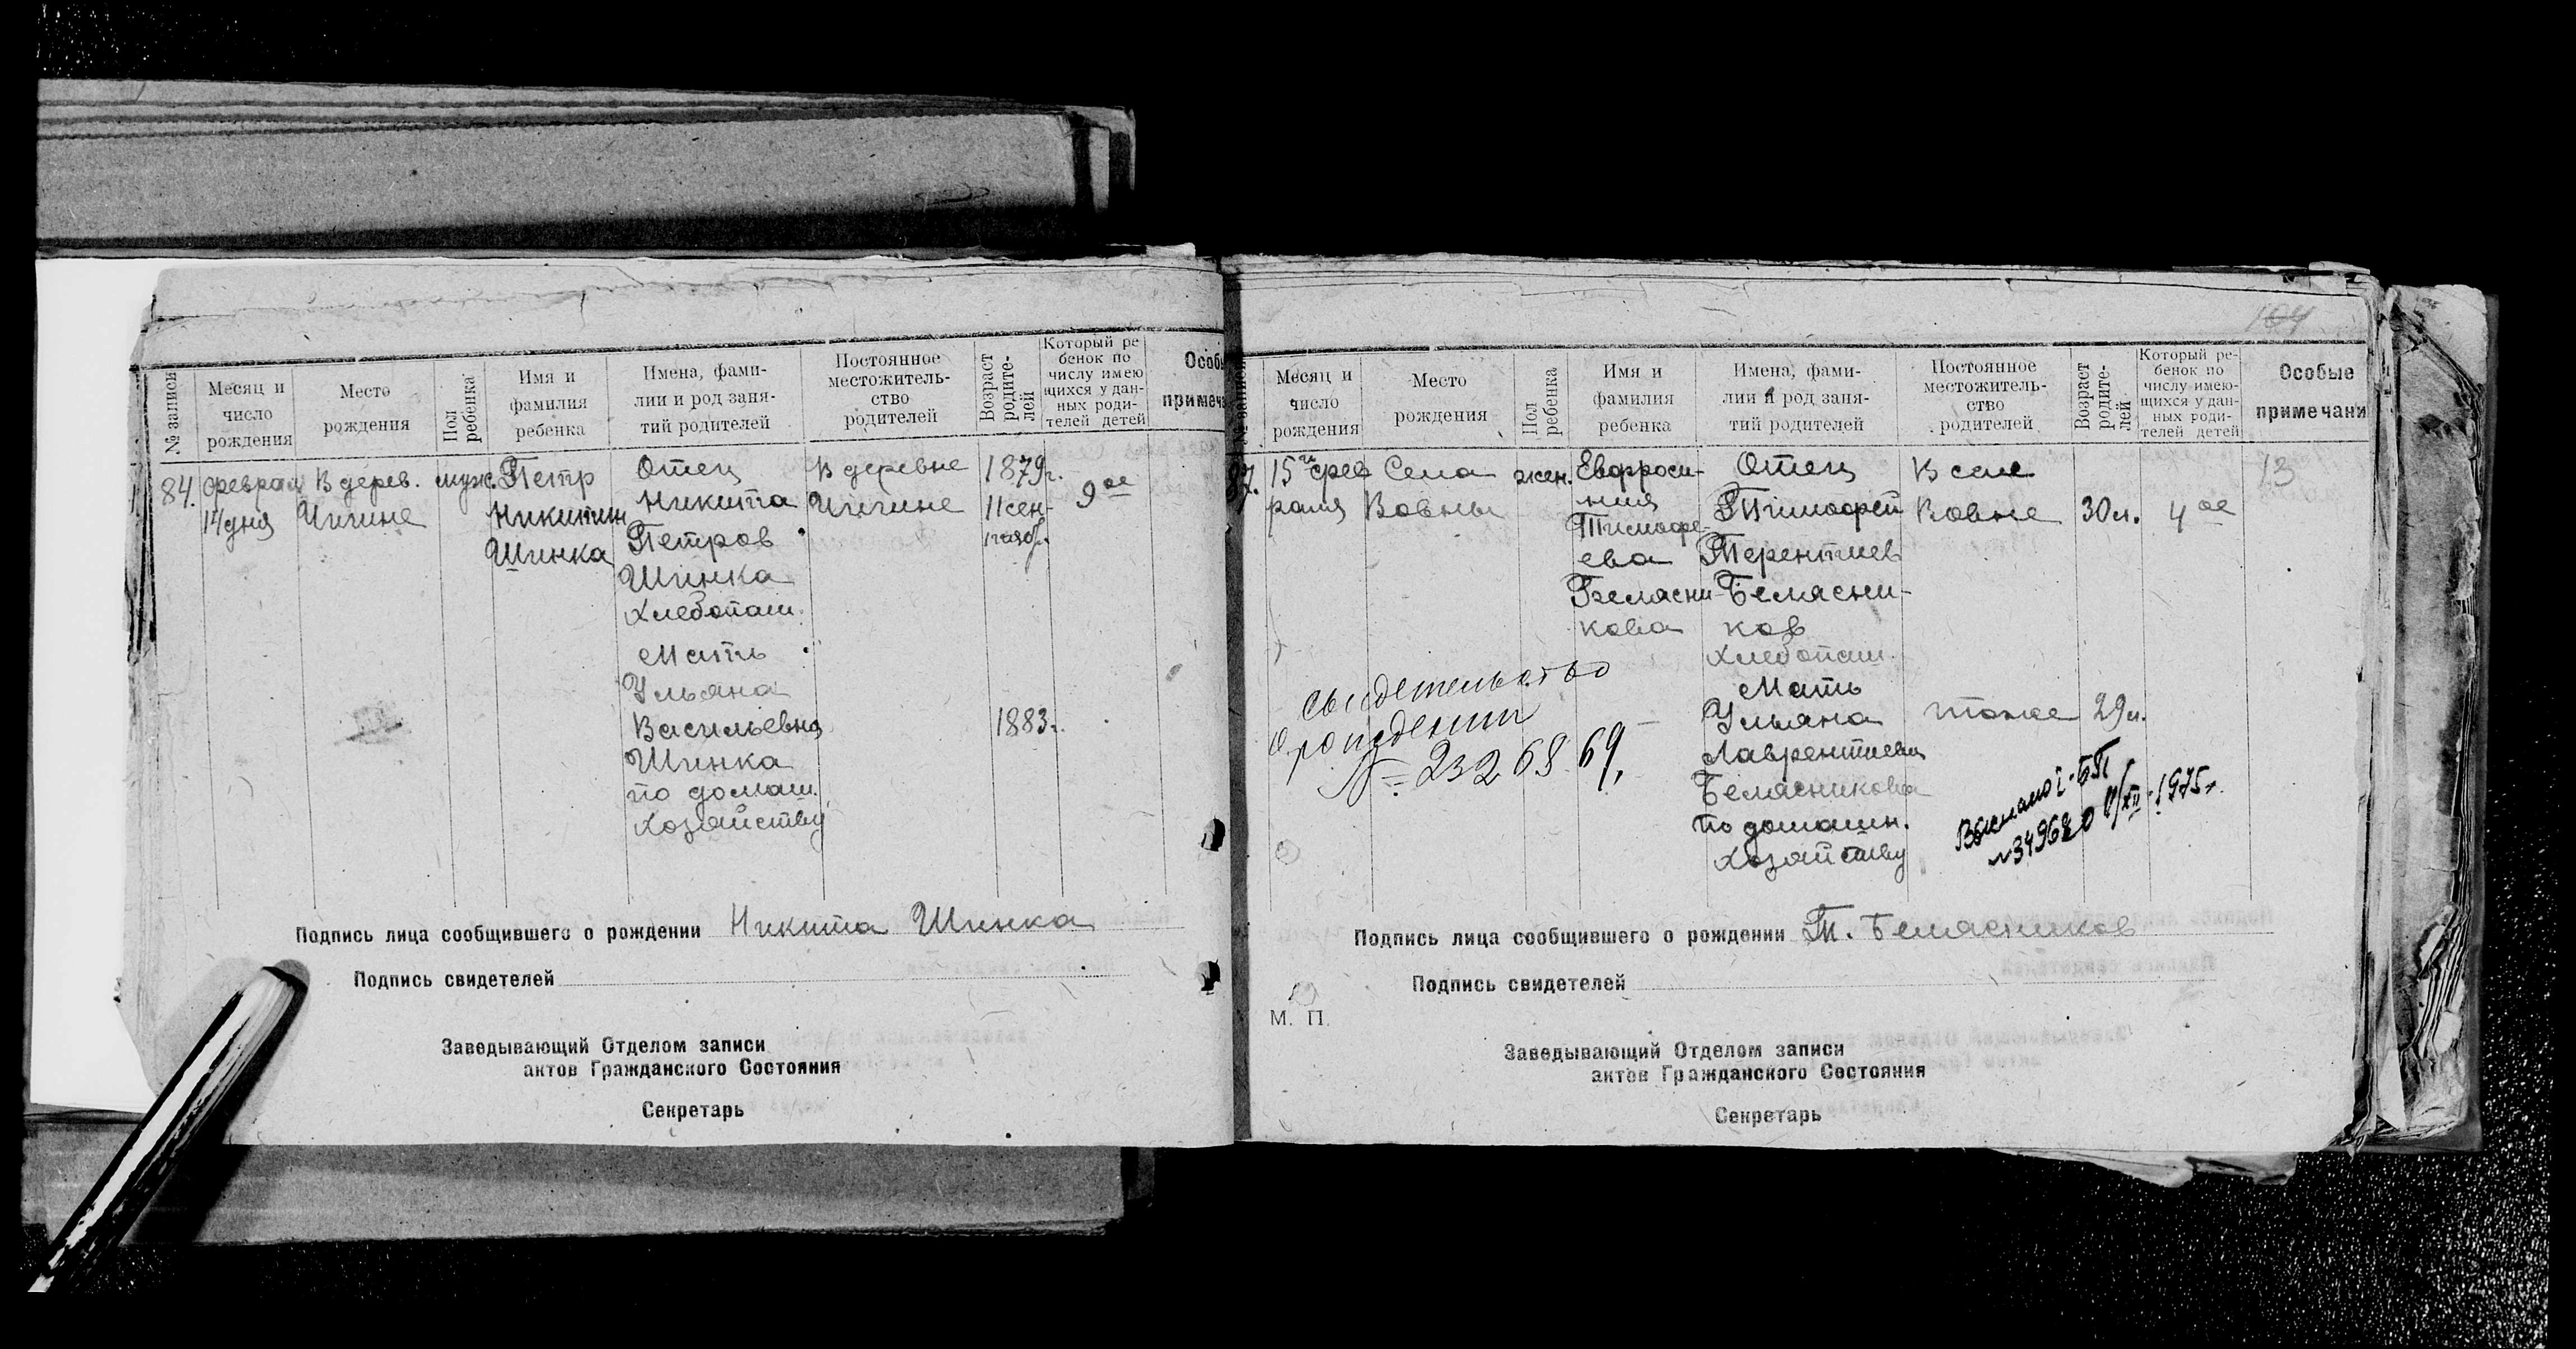 № записи
Месяц и число рождения
Место рождения
Пол ребенка
Имя и фамилия ребенка
Имена, фамилии и род занятий родителей
Постоянное местожительство родителей
Возраст родителей
Который ребенок по числу имеющихся у данных родителей детей
Особы
примеча
84.
февраля
14 дня
В дерев.
муж.
Петр
Никитин
Шинка
Отец
Никита
Петров
Шинка
Хлебопаш.
Мать
Ульяна
Васильевна
Шинка
по домаш.
хозяйству
В деревне
1879г.
11 сен-
1883г.
9 ое
Подпись лица сообщившего о рождении Никита Шинка
Подпись свидетелей
Заведывающий Отделом записи
актов Гражданского Состояния
Секретарь
104
№ записи
Месяц и число рождения
Место рождения
Пол ребенка
Имя и фамилия ребенка
Имена, фамилии и род занятий родителей
Постоянное местожительство родителей
Возраст родителей
Который ребенок по числу имеющихся у данных родителей детей
Особые
примечани
87.
15 фев
раля
Села
Вовны
жен.
Евфроси-
ния
Тимофе-
ева
Белясни-
кова
Отец
Тимофей
Терентиев
Белясни-
ков
Хлебопаш.
Мать
Ульяна
Лаврентиевна
Белясникова
По домашн.
хозяйству
В селе
Вовне
тоже
30 л.
29 л.
4 ое
13
свидетельство
о рождении
№ 2326869,
1975г.
Подпись лица сообщившего о рождении Т. Белясников
Подпись свидетелей
М. П.
Заведывающий Отделом записи
актов Гражданского Состояния
Секретарь